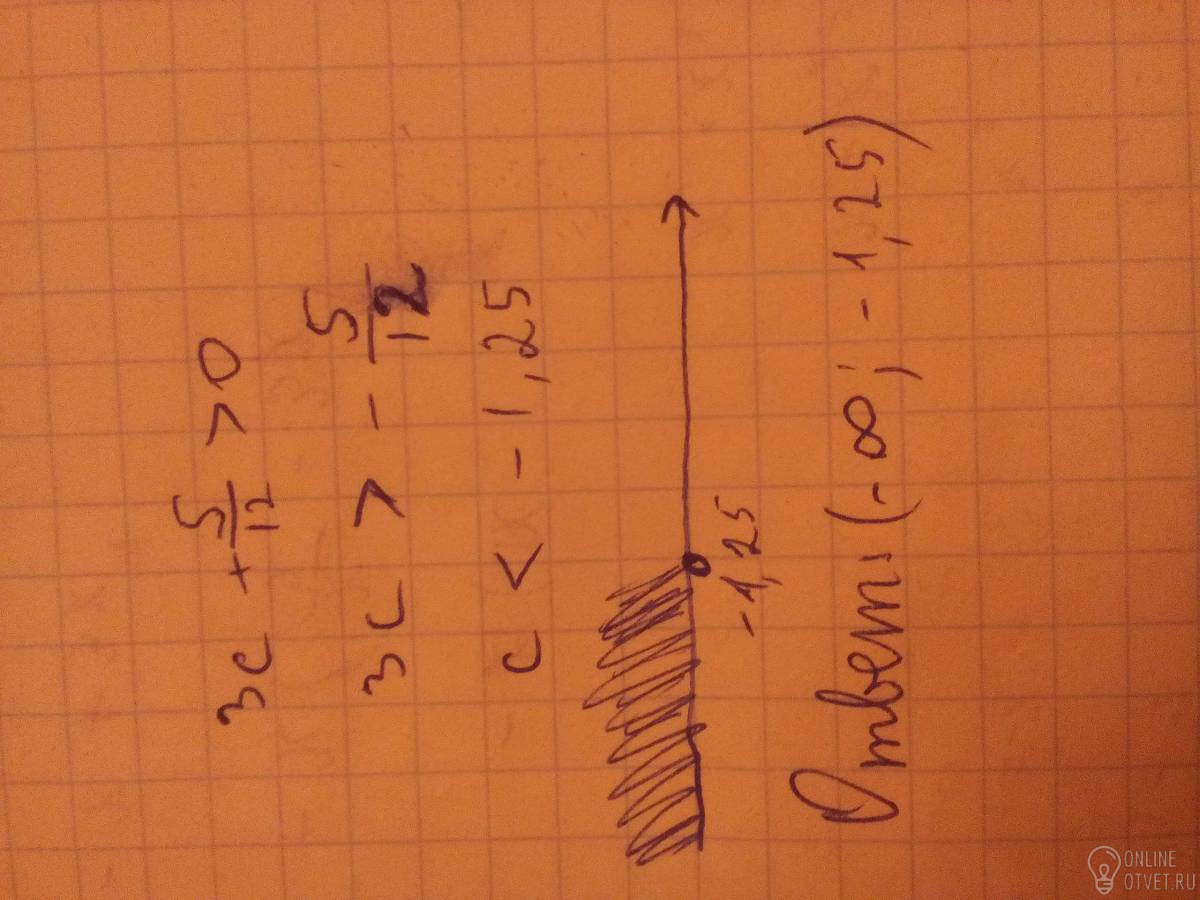 3c + 5/12 > 0
3c > - 5/12
c < - 1,25
-1,25
Ответ: (-∞; -1,25)
ONLINE
OTVET.RU